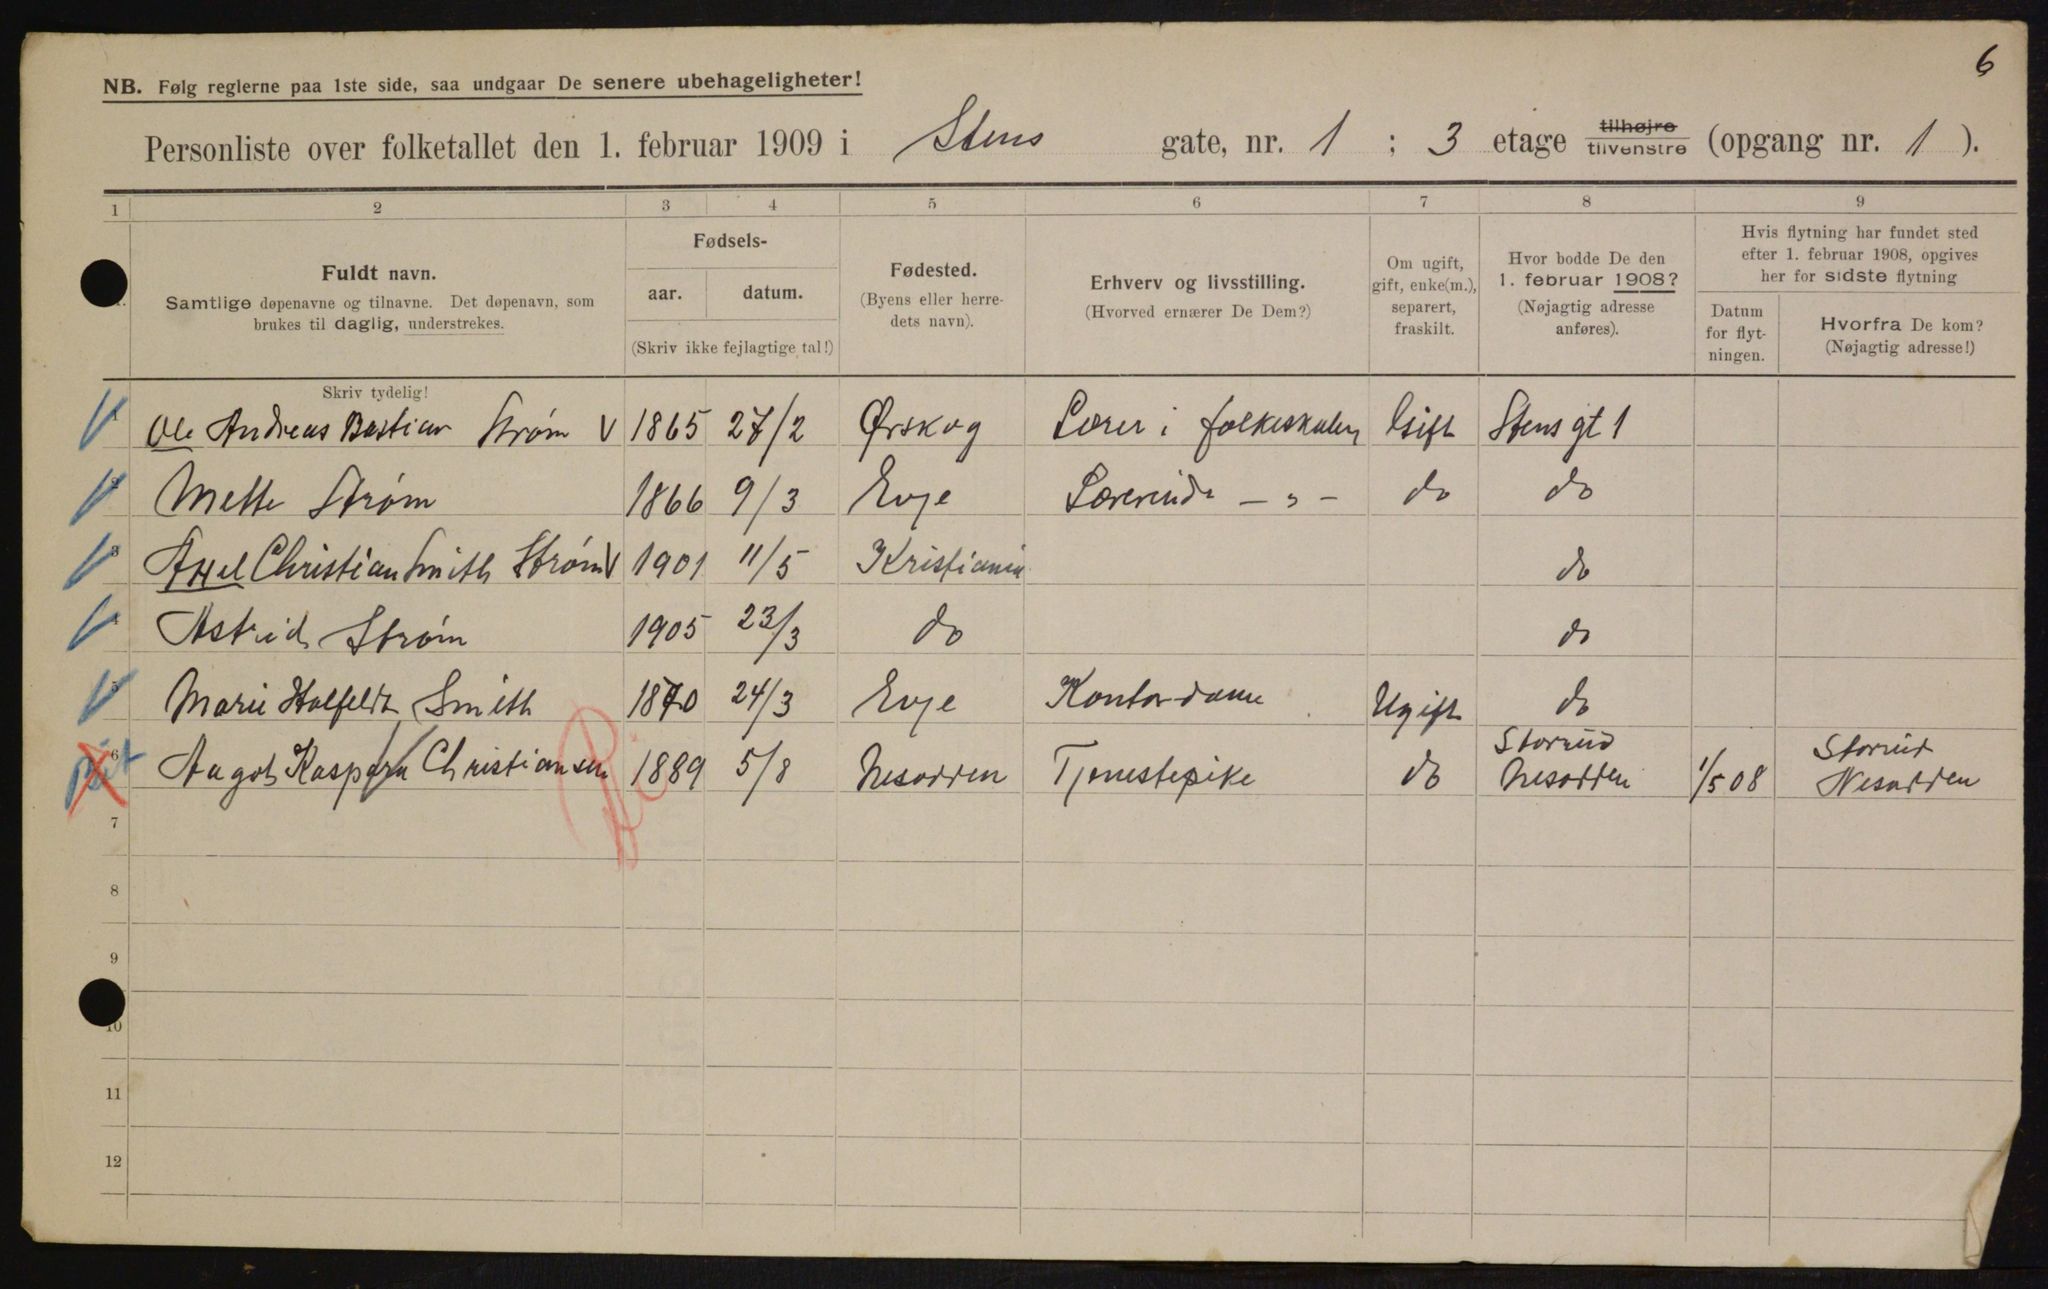 6
NB. Følg reglerne paa 1ste side, saa undgaar De senere ubehageligheter!
Personliste over folketallet den 1. februar 1909 i Stens gate, nr. 1 ; 3 etage tilhøjre tilvenstre (opgang nr. 1 ).
1 2 3 4 5 6 7 8 9
Fuldt navn.
Samtlige døpenavne og tilnavne. Det døpenavn, som
brukes til daglig, understrekes.
Skriv tydelig!
Fødsels-
aar. datum.
(Skriv ikke fejlagtige tal!)
Fødested.
(Byens eller herre-
dets navn).
Erhverv og livsstilling.
(Hvorved ernærer De Dem?)
Om ugift,
gift, enke(m.),
separert,
fraskilt.
Hvor bodde De den
1. februar 1908?
(Nøjagtig adresse
anføres).
Hvis flytning har fundet sted
efter 1. februar 1908, opgives
her for sidste flytning
Datum
for flyt-
ningen.
Hvorfra De kom?
(Nøjagtig adresse!)
1 Ole Andreas Bastian Strøm V 1865 27/2 Ørskog Lærer i folkeskolen Gift Stens gt 1
2 Mette Strøm 1866 9/3 Evje Lærerinde — „ — do do
3 Axel Christian Smith Strøm V 1901 11/5 Kristiania do
4 Astrid Strøm 1905 23/3 do do
5 Marie Smith 1870 24/3 Evje Kontordame Ugift do
6 Aagot Kaspara Christiansen 1889 5/8 Nesodden Tjenestepike do Storrud Nesodden 1/5 08 Storrud Nesodden
7
8
9
10
11
12